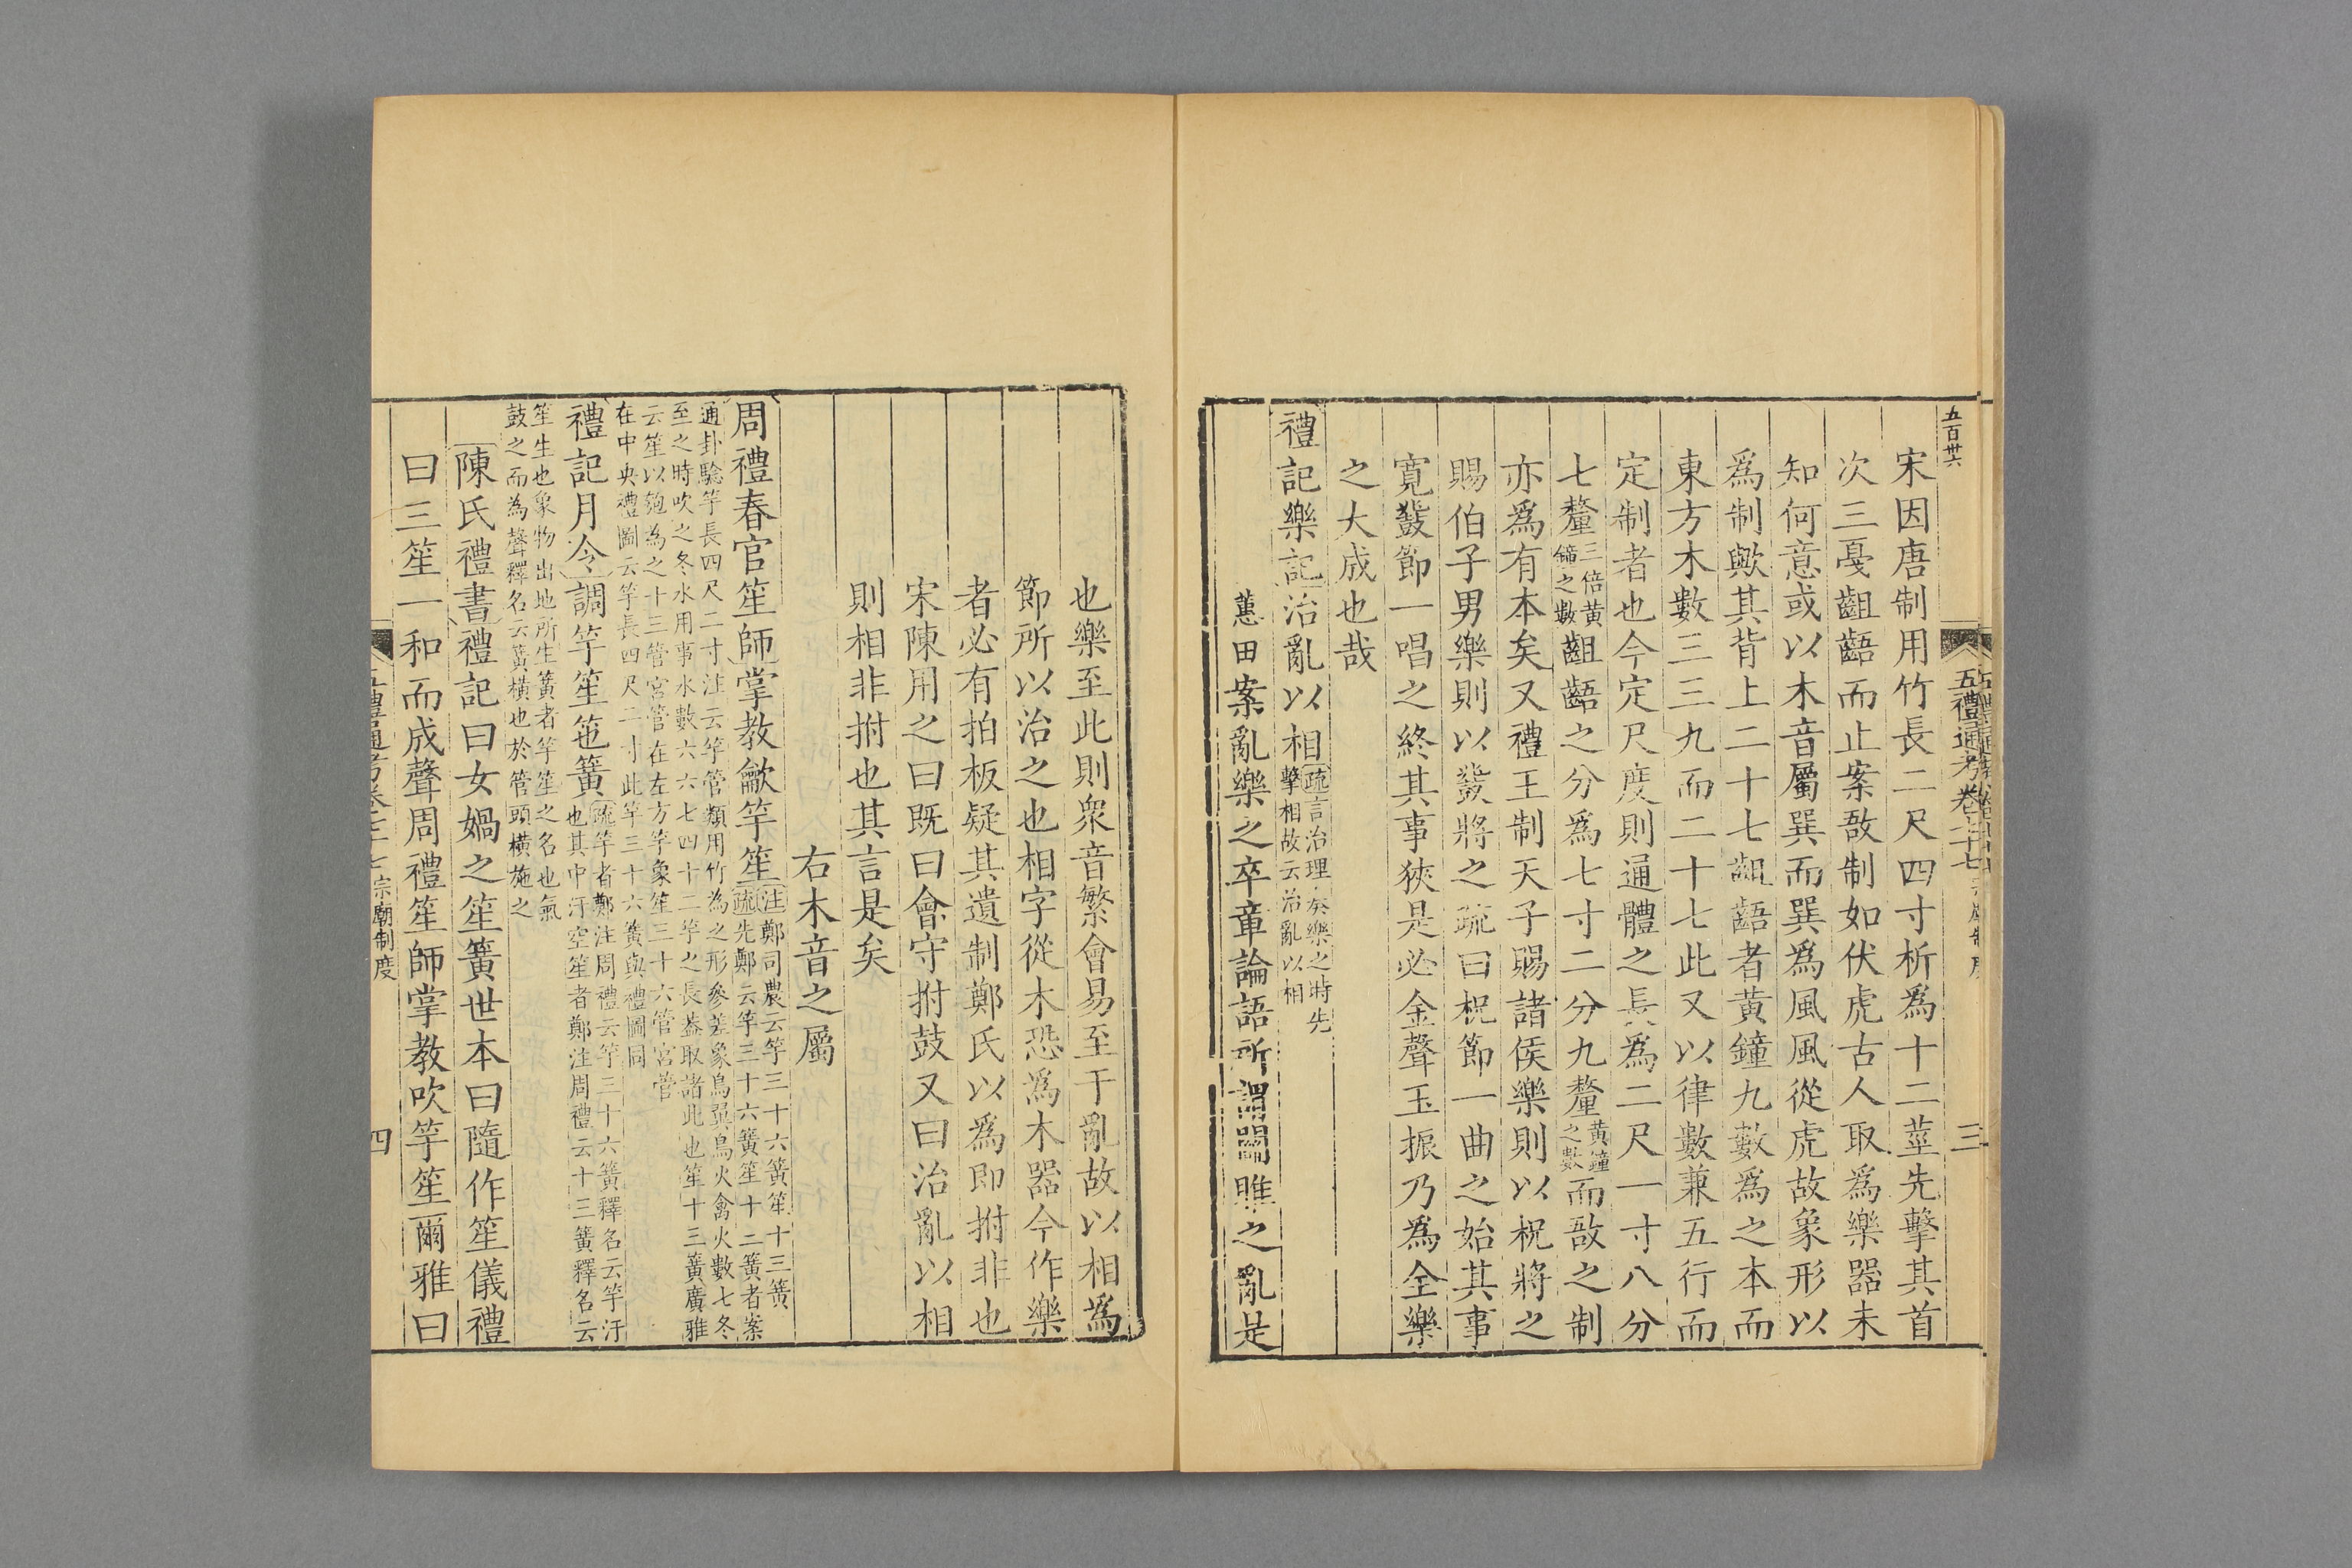 五百卅六
五禮通考卷七十七
三
宋因唐制用竹長二尺四寸析爲十二莖先擊其首
次三戞齟齬而止案敔制如伏虎古人取爲樂器未
知何意或以木音屬巽而巽爲風風從虎故象形以
爲制歟其背上二十七齟齬者黄鐘九數爲之本而
東方木數三三九而二十七此又以律數兼五行而
定制者也今定尺度則通體之長爲二尺一寸八分
七釐三倍黄鐘之數齟齬之分爲七寸二分九釐黄鐘之數而敔之制
亦爲有本矣又禮王制天子賜諸侯樂則以柷將之
賜伯子男樂則以鼗將之疏曰柷節一曲之始其事
寛鼗節一唱之終其事狹是必金聲玉振乃爲全樂
之大成也哉
禮記樂記治亂以相疏言治理奏樂之時先擊相故云治亂以相
蕙田案亂樂之卒章論語所謂關雎之亂是
也樂至此則衆音繁會易至于亂故以相爲
節所以治之也相字從木恐爲木器今作樂
者必有拍板疑其遺制鄭氏以爲即拊非也
宋陳用之曰既曰會守拊鼓又曰治亂以相
則相非拊也其言是矣
右木音之屬
周禮春官笙師掌教龡竽笙注鄭司農云竽三十六簧笙十三簧
疏先鄭云竽三十六簧笙十二簧者案
通卦驗竽長四尺二寸注云竽管類用竹為之形參差象鳥翼鳥火禽火數七冬
至之時吹之冬水用事水數六六七四十二竽之長葢取諸此也笙十三簧廣雅
云笙以匏為之十三管宮管在左方竽象笙三十六管宮管
在中央禮圖云竽長四尺二寸此竽三十六簧與禮圖同
禮記月令調竽笙竾簧疏竽者鄭注周禮云竽三十六簧釋名云竽汙
也其中汙空笙者鄭注周禮云十三簧釋名云
笙生也象物出地所生簧者竽笙之名也氣
鼓之而為聲釋名云簧橫也於管頭橫施之
陳氏禮書禮記曰女媧之笙簧世本曰隨作笙儀禮
曰三笙一和而成聲周禮笙師掌教吹竽笙爾雅曰
宗廟制度
四